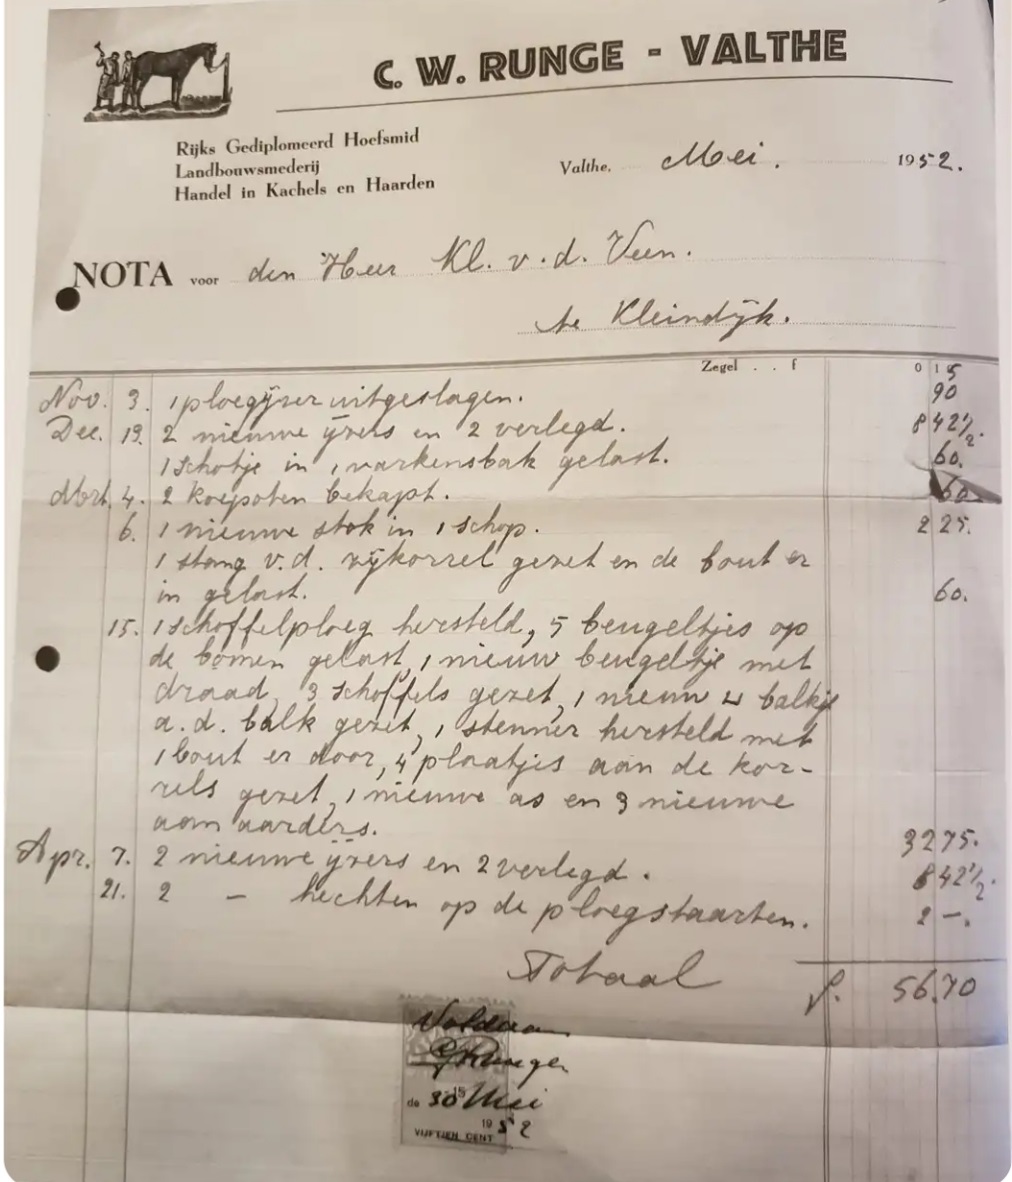 C. W. RUNGE - VALTHE
Rijks Gediplomeerd Hoefsmid
Landbouwsmederij
Handel in Kachels en Haarden
Valthe, Mei. 1952.
NOTA voor den Heer Kl. v. d. Veen.
te Kleindijk.
Zegel . . f 0 15
Nov. 3. 1 ploegijzer uitgeslagen. 90
Dec. 19. 2 nieuwe ijzers en 2 verlegd. 8 42½.
1 schotje in 1 varkensbak gelast. 60.
Mrt. 4. 2 koepoten bekapt. 60
6. 1 nieuwe stok in 1 schop. 2 25.
1 stang v. d. zijkorrel gezet en de bout er
in gelast. 60.
15. 1 schoffelploeg hersteld, 5 beugeltjes op
de bomen gelast, 1 nieuw beugeltje met
draad, 3 schoffels gezet, 1 nieuw balkje
a. d. balk gezet, 1 stenner hersteld met
1 bout er door, 4 plaatjes aan de kor-
rels gezet, 1 nieuwe as en 3 nieuwe
aanaarders. 32 75.
Apr. 7. 2 nieuwe ijzers en 2 verlegd. 8 42½.
21. 2 - hechten op de ploegstaarten. 2 -.
Totaal f. 56.70
Voldaan
Runge
de 30 Mei
1952
VIJFTIEN CENT